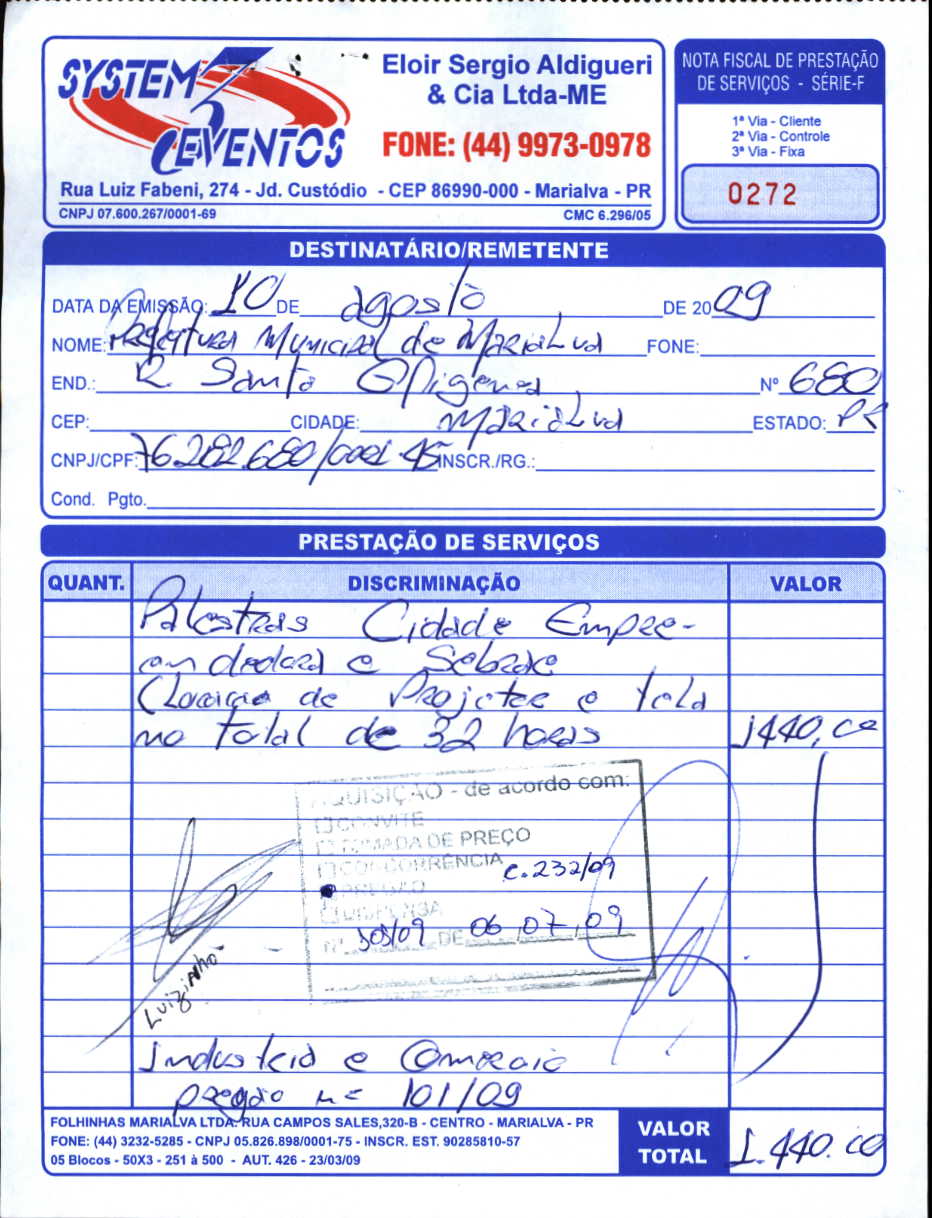 SYSTEM 3 EVENTOS
Eloir Sergio Aldigueri
& Cia Ltda-ME
FONE: (44) 9973-0978
Rua Luiz Fabeni, 274 - Jd. Custódio - CEP 86990-000 - Marialva - PR
CNPJ 07.600.267/0001-69 CMC 6.296/05
NOTA FISCAL DE PRESTAÇÃO
DE SERVIÇOS - SÉRIE-F
1ª Via - Cliente
2ª Via - Controle
3ª Via - Fixa
0272
DESTINATÁRIO/REMETENTE
DATA DA EMISSÃO: 10 DE agosto DE 2009
NOME: Prefeitura Municipal de Marialva FONE:
END.: R. Santa Efigenea Nº 680
CEP: CIDADE: Marialva ESTADO: PR
CNPJ/CPF: 76.282.680/0001-45 INSCR./RG.:
Cond. Pgto.
PRESTAÇÃO DE SERVIÇOS
QUANT. DISCRIMINAÇÃO VALOR
Palestras Cidade Empre-
endedora e Sebrae
Locação de Projetor e tela
no total de 32 horas 1440,00
AQUISIÇÃO - de acordo com:
CONVITE
TOMADA DE PREÇO
CONCORRÊNCIA C.232/09
PREGÃO
DISPENSA
Nº DE 06,07,09
Luizinho
Industria e Comercio
pregão nº 101/09
FOLHINHAS MARIALVA LTDA. RUA CAMPOS SALES,320-B - CENTRO - MARIALVA - PR
FONE: (44) 3232-5285 - CNPJ 05.826.898/0001-75 - INSCR. EST. 90285810-57
05 Blocos - 50X3 - 251 à 500 - AUT. 426 - 23/03/09
VALOR
TOTAL 1.440.00